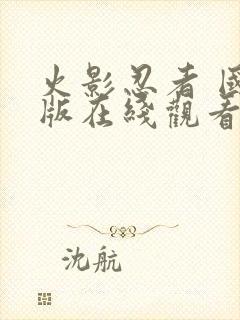 火影忍者 國
版在綫觀看
沈航